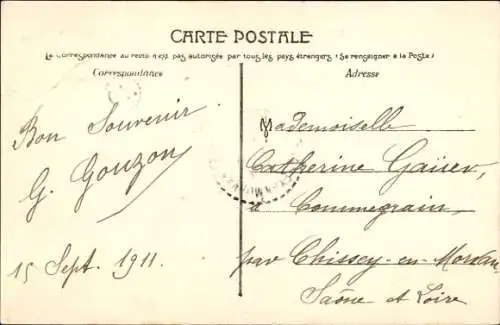 CARTE POSTALE
La Correspondance au recto n'est pas autorisée par tous les pays étrangers (Se renseigner à la Poste)
Correspondance
Adresse
Bon Souvenir
G. Gouzon
15 Sept. 1911.
Mademoiselle
Catherine
à Commegrain,
par Chissey-en-Morvan
Saône et Loire